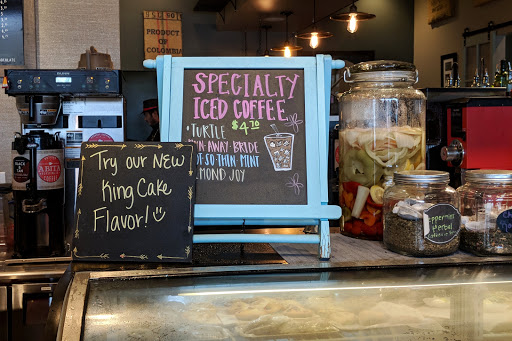 PRODUCT
OF COLOMBIA
SPECIALTY
ICED COFFEE
$4.70
• TURTLE
N-AWAY-BRIDE
T-SO-THIN MINT
MOND JOY
Try our New
King Cake
Flavor!
ABITA
Peppermint
Herbal